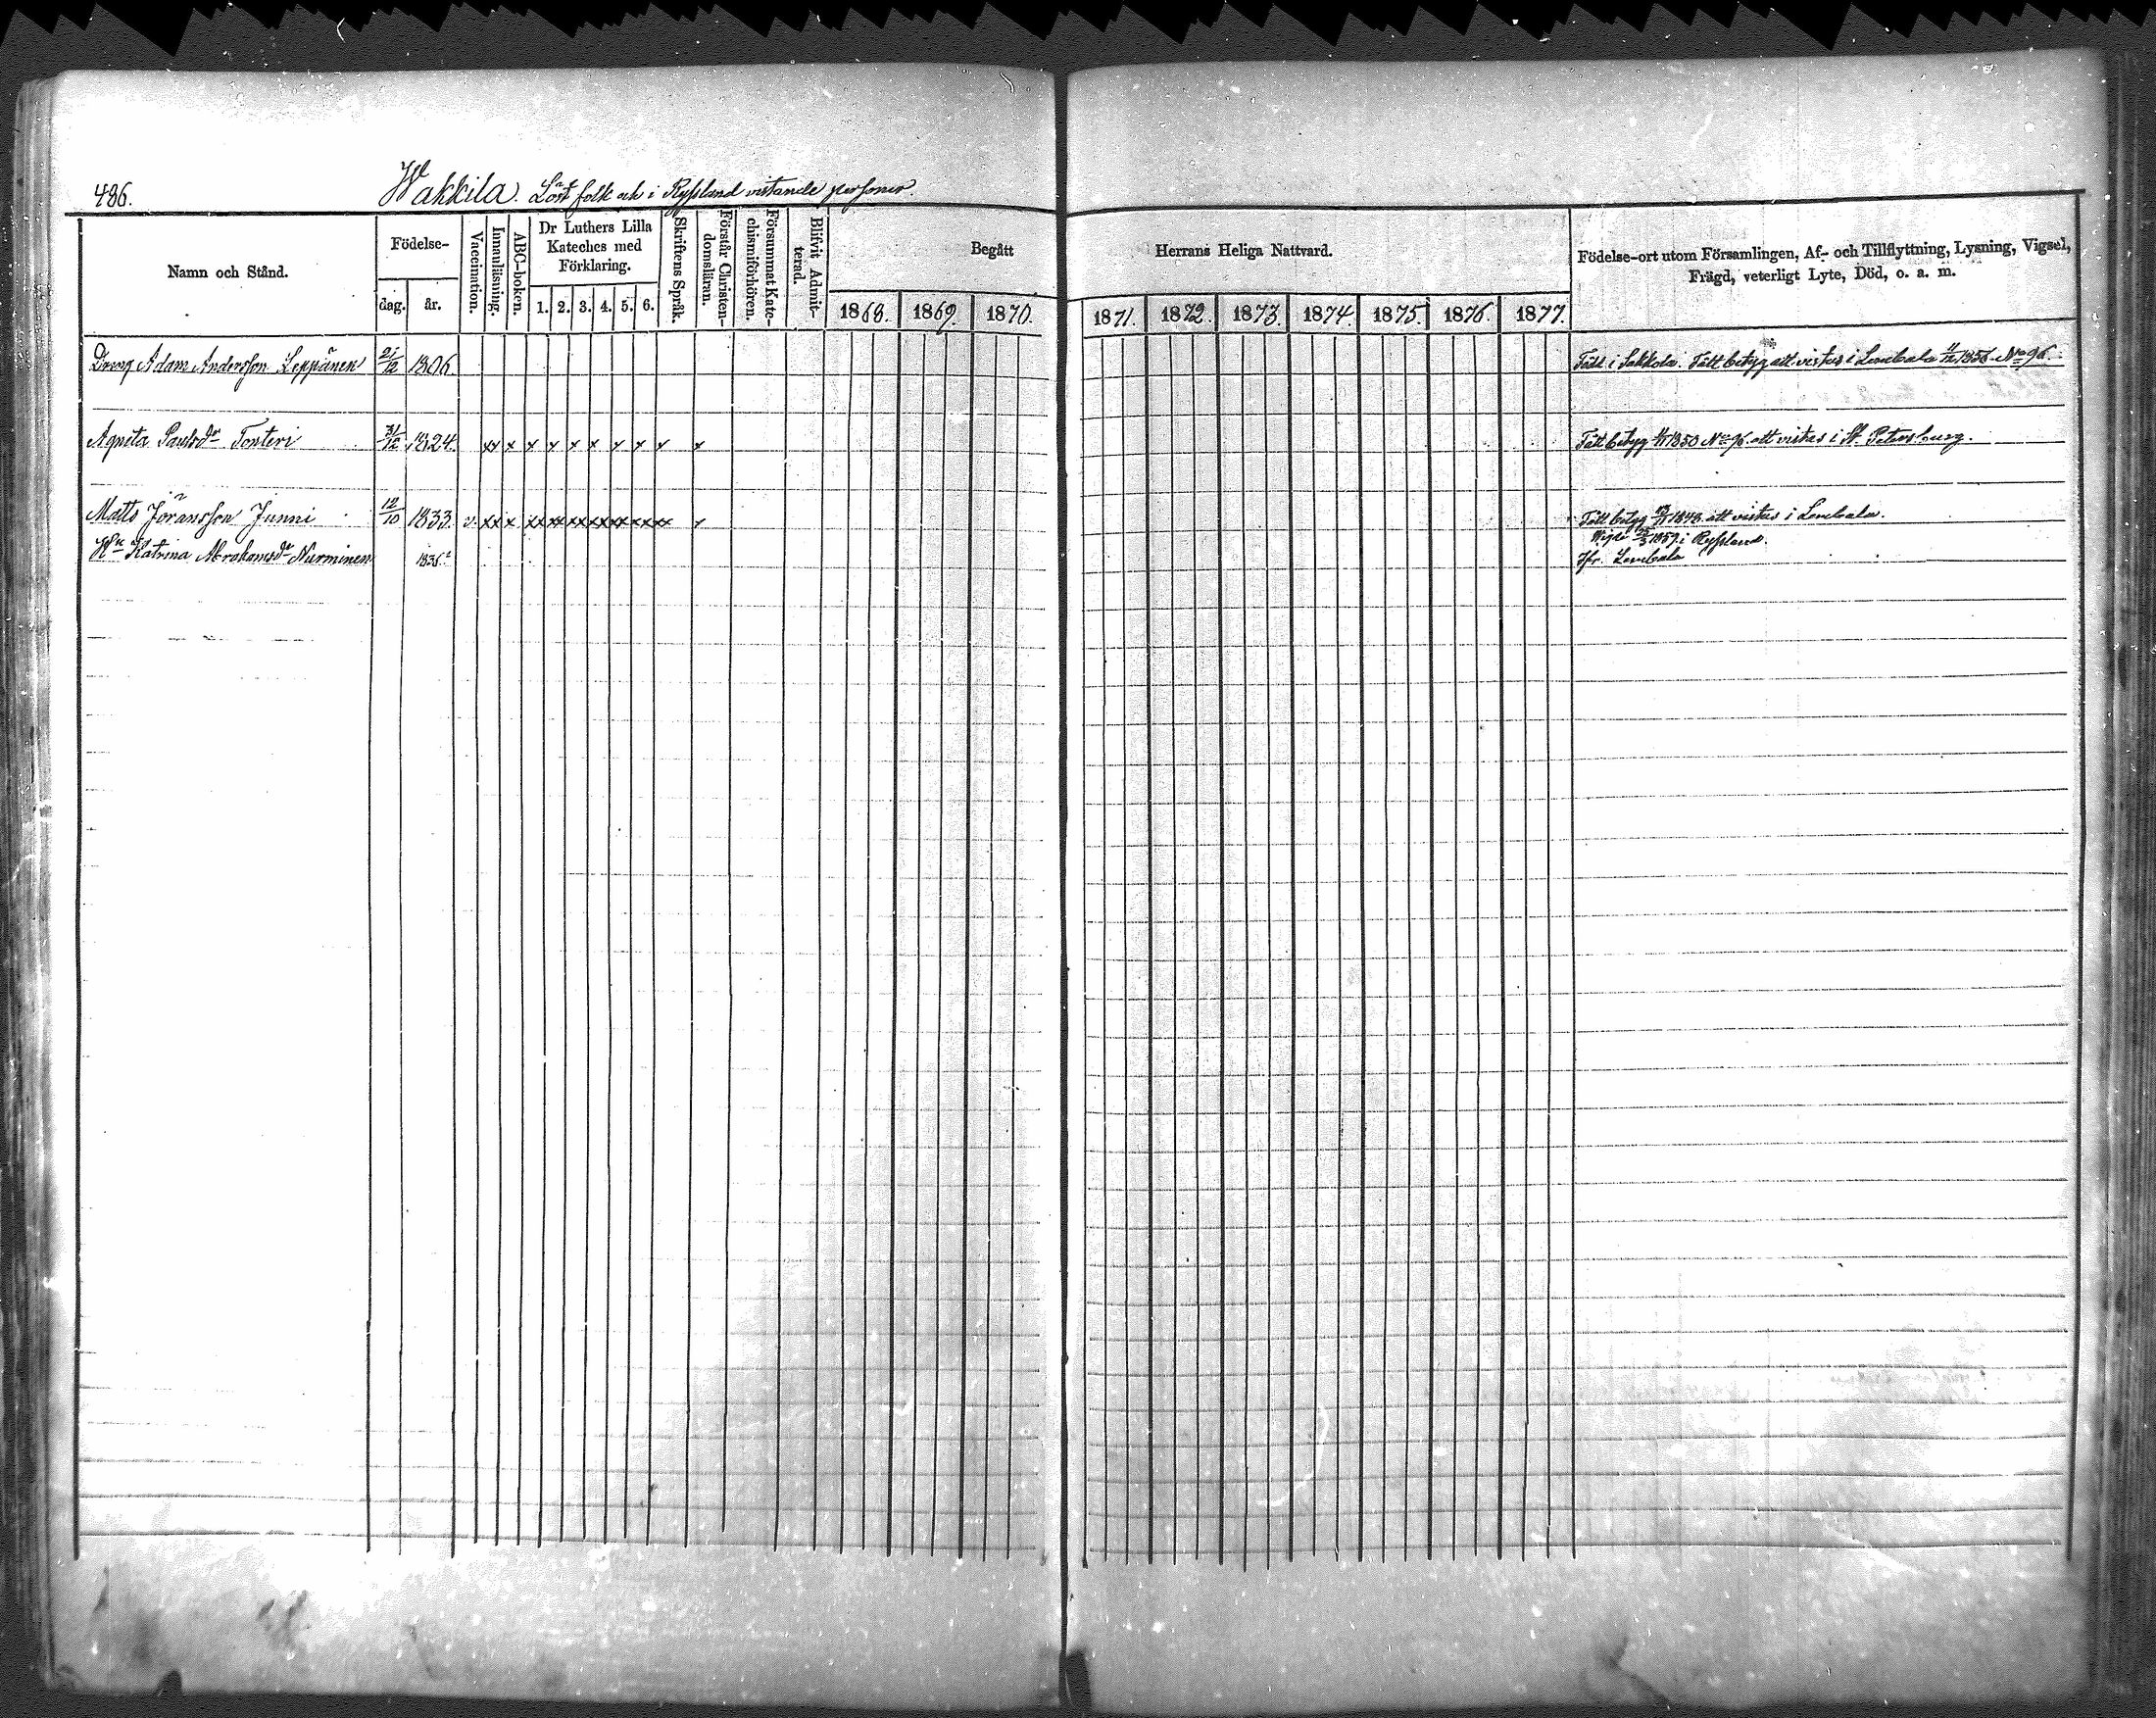 486.
Wakkila. Löst folk och i Ryssland vistande personer.
Namn och Stånd.
Födelse-
dag.
år.
Vaccination.
Innanläsning.
ABC-boken.
Dr Luthers Lilla
Kateches med
Förklaring.
1. 2. 3. 4. 5. 6.
Skriftens Språk.
Förstår Christen-
domsläran.
Försummat Kate-
chismiförhören.
Blifvit Admit-
terad.
Begått
1868. 1869. 1870.
Herrans Heliga Nattvard.
1871. 1872. 1873. 1874. 1875. 1876. 1877.
Födelse-ort utom Församlingen, Af- och Tillflyttning, Lysning, Vigsel,
Frägd, veterligt Lyte, Död, o. a. m.
Dreng Adam Andersson Leppänen 21/12 1806. Född i Sakkola. Fått betyg att vistas i Lembala 11/12 1856 No 96.
Agneta Paulsdr Tonteri 31/12 1824. xx x x x x x x x x x Fått betyg 1850 No 96 att vistas i St. Petersburg.
Matts Jöransson Junni 12/10 1833. v. xx x xx xx xx xx xx xx xx x Fått betyg 1848 att vistas i Lembala.
Vigde 1859 i Ryssland.
Hu Katrina Abrahamsdr Nurminen 1836 Ifr. Lembala